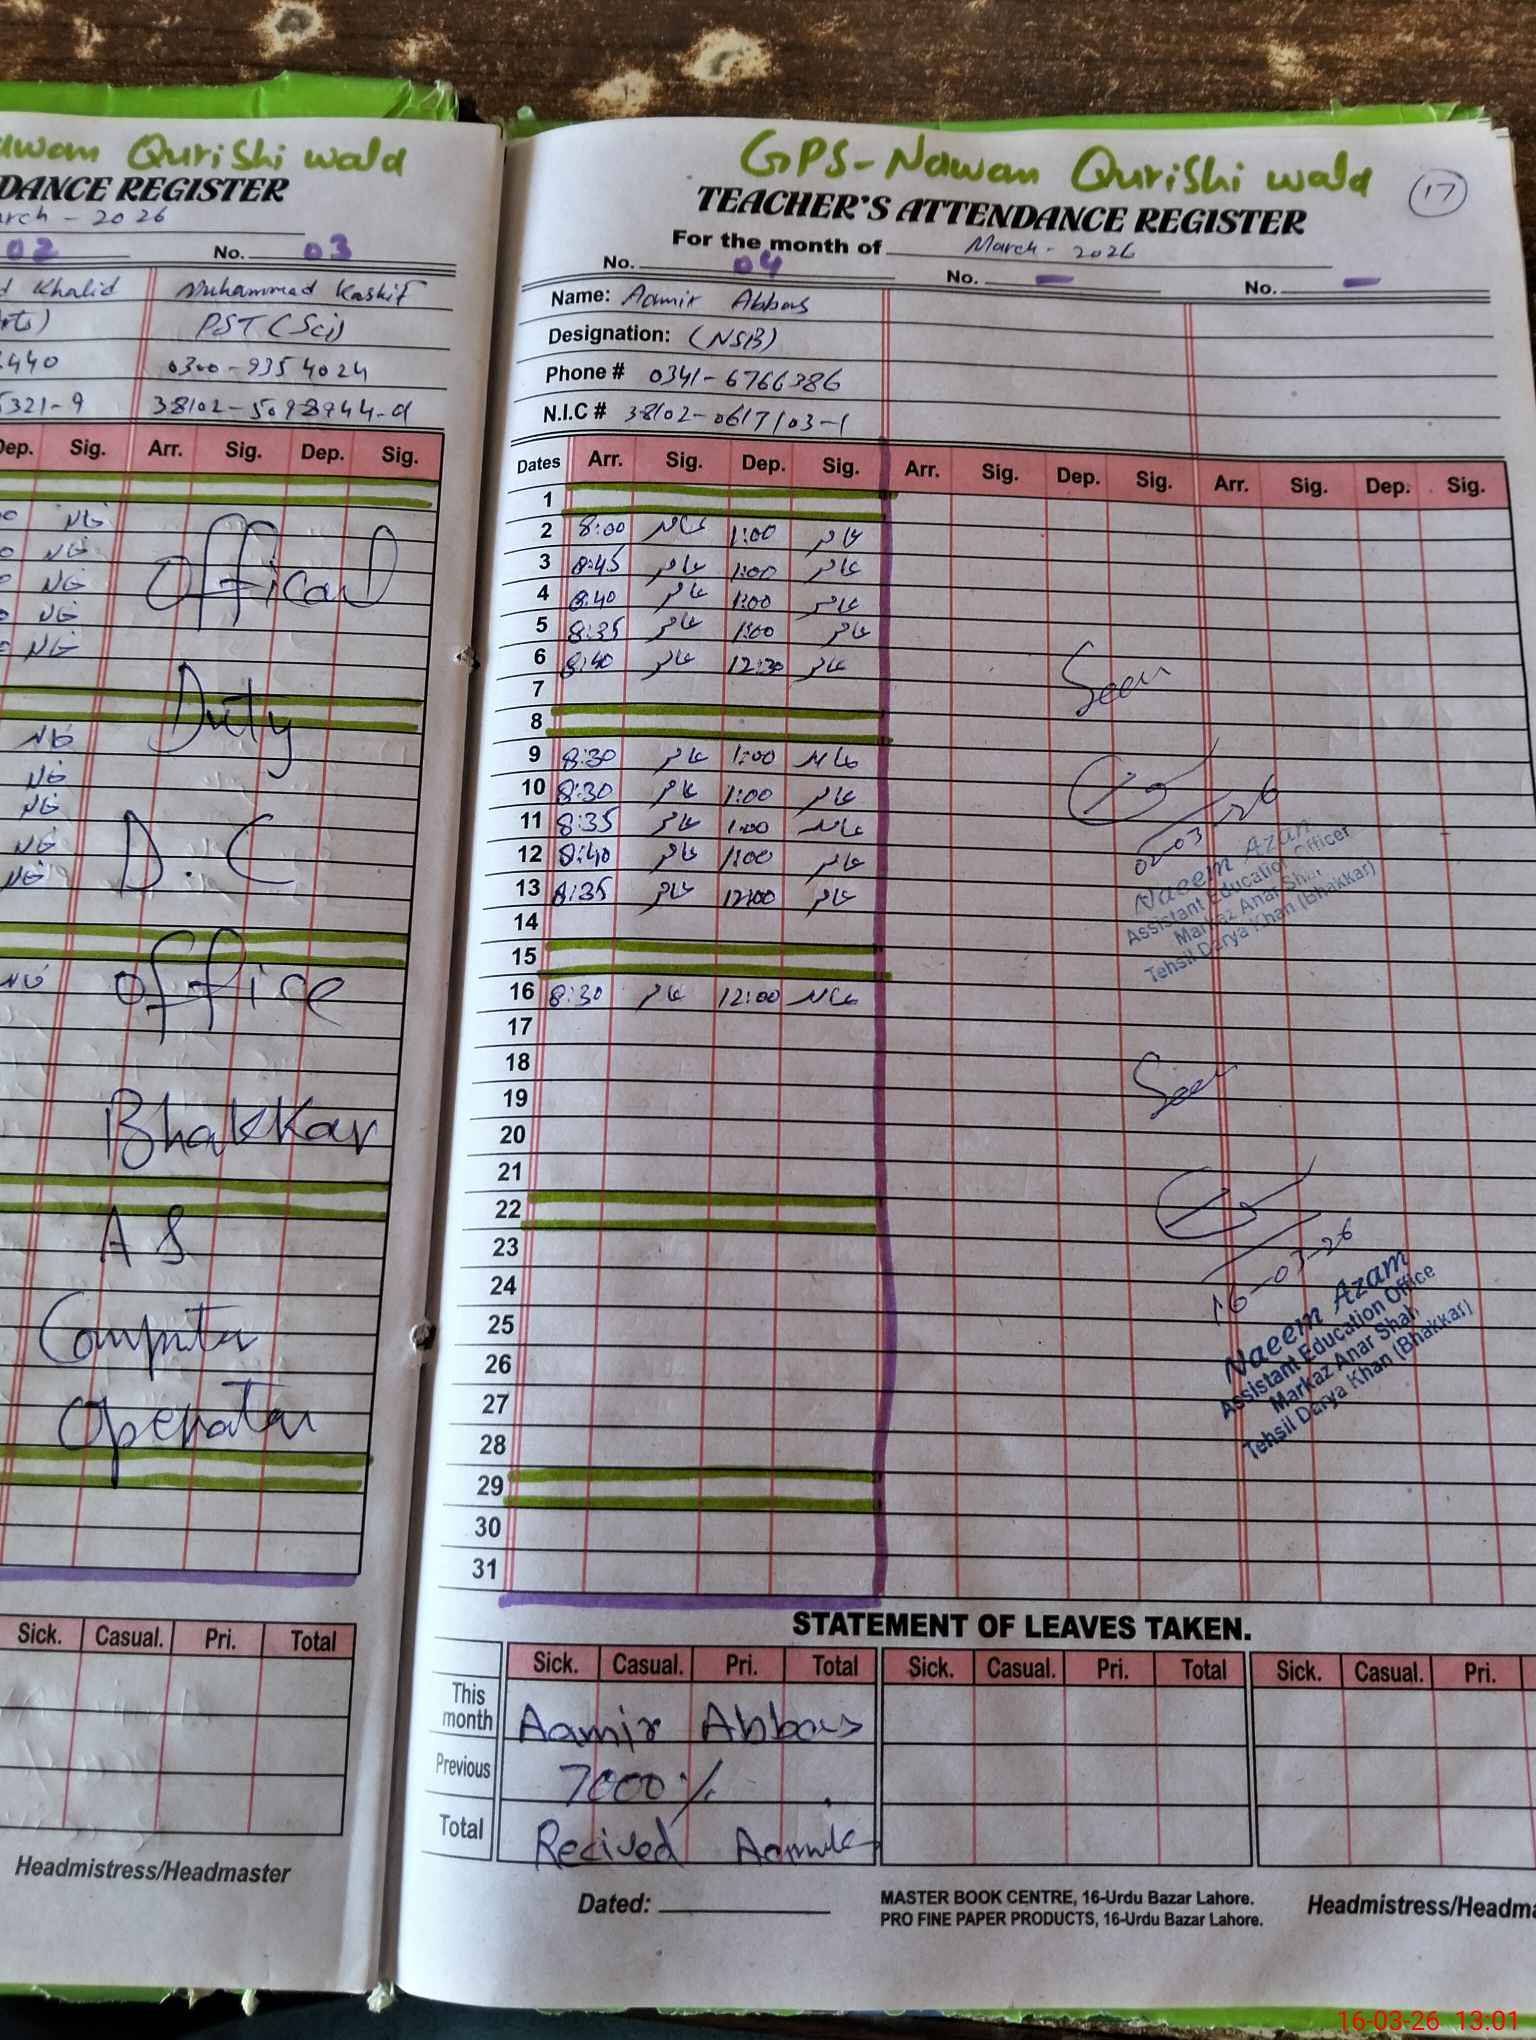 awan Qurishi wala
DANCE REGISTER
arch - 2026
02 No. 03
d Khalid Muhammad Kashif
rts) PST (Sci)
440 0300-9354024
5321-9
Dep. Sig. Arr. Sig. Dep. Sig.
Offical
Duty
D.C
office
Bhakkar
AS
Computer
Operator
Sick. Casual. Pri. Total
Headmistress/Headmaster
GPS-Nawan Qurishi wala
17
TEACHER'S ATTENDANCE REGISTER
For the month of March - 2026
No. 04 No. - No. -
Name: Aamir Abbas
Designation: (NSB)
Phone # 0341-6766386
N.I.C # 38102-0617103-1
Dates Arr. Sig. Dep. Sig. Arr. Sig. Dep. Sig. Arr. Sig. Dep. Sig.
1
2 8:00 عامر 1:00 عامر
3 8:45 عامر 1:00 عامر
4 8:40 عامر 1:00 عامر
5 8:35 عامر 1:00 عامر
6 8:40 عامر 12:30 عامر
7
8
9 8:30 عامر 1:00 عامر
10 8:30 عامر 1:00 عامر
11 8:35 عامر 1:00 عامر
12 8:40 عامر 1:00 عامر
13 8:35 عامر 12:00 عامر
14
15
16 8:30 عامر 12:00 عامر
17
18
19
20
21
22
23
24
25
26
27
28
29
30
31
Seen
02-03-26
Naeem Azam
Assistant Education Officer
Markaz Anar Shah
Tehsil Darya Khan (Bhakkar)
Seen
16-03-26
Naeem Azam
Assistant Education Office
Markaz Anar Shah
Tehsil Darya Khan (Bhakkar)
STATEMENT OF LEAVES TAKEN.
Sick. Casual. Pri. Total Sick. Casual. Pri. Total Sick. Casual. Pri.
This month Aamir Abbas
Previous 7000/.
Total Recived
Dated:
MASTER BOOK CENTRE, 16-Urdu Bazar Lahore.
PRO FINE PAPER PRODUCTS, 16-Urdu Bazar Lahore.
Headmistress/Headma
16-03-26 13:01